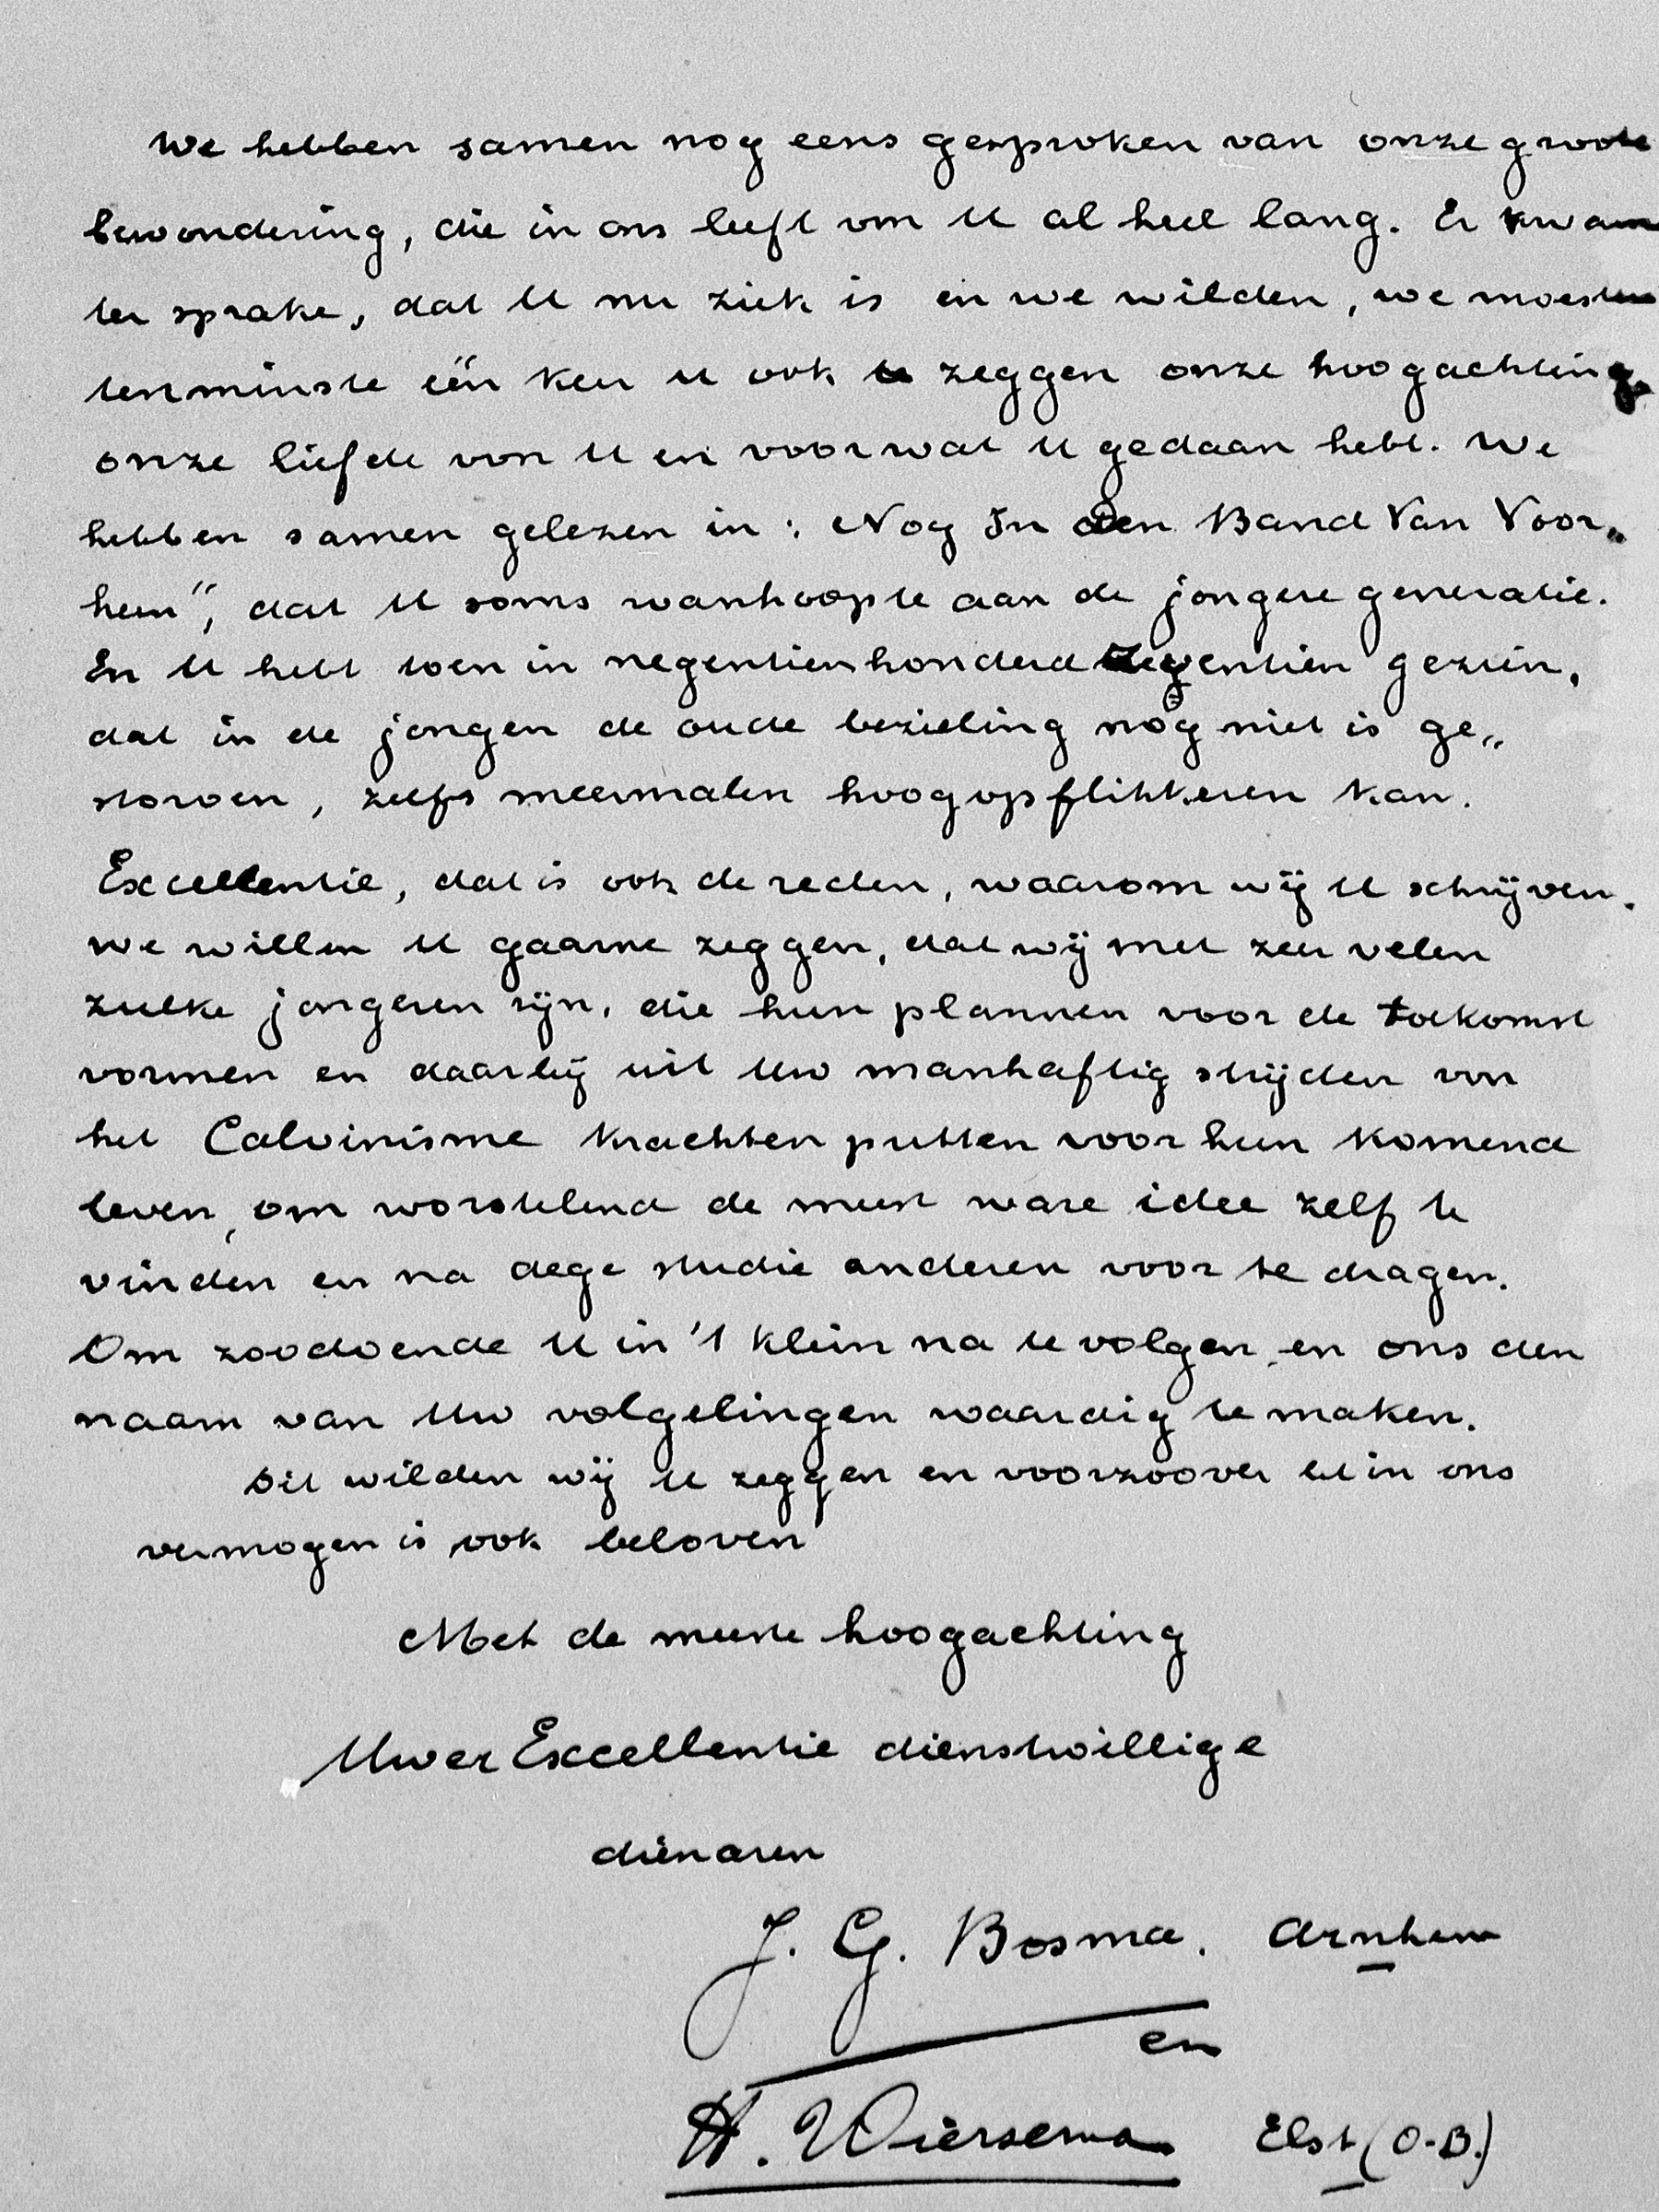 We hebben samen nog eens gesproken van onze groote
bewondering, die in ons leeft von U al heel lang. Er kwam
ter sprake, dat U nu ziek is en we wilden, we moesten
tenminste één keer U ook te zeggen onze hoogachting,
onze liefde von U en voor wat U gedaan hebt. We
hebben samen gelezen in: Nog In Den Band Van Voor„
heen”, dat U soms wanhoopte aan de jongere generatie.
En U hebt toen in negentienhonderd zeventien gezien,
dat in de jongen de oude bezieling nog niet is ge„
storven, zelfs meermalen hoog opflikkeren kan.
Excellentie, dat is ook de reden, waarom wij U schrijven.
We willen U gaarne zeggen, dat wij met zeer velen
zulke jongeren zijn, die hun plannen voor de toekomst
vormen en daarbij uit Uw manhaftig strijden von
het Calvinisme krachten putten voor hun komend
leven, om worstelend de meest ware idee zelf te
vinden en na dege studie anderen voor te dragen.
Om zoodoende U in 't klein na te volgen en ons den
naam van Uw volgelingen waardig te maken.
Dit wilden wij U zeggen en voorzoover het in ons
vermogen is ook beloven
Met de meeste hoogachting
Uwer Excellentie dienstwillige
dienaren
J. G. Bosma. Arnhem
en
H. Wiersema Elst (O-B.)